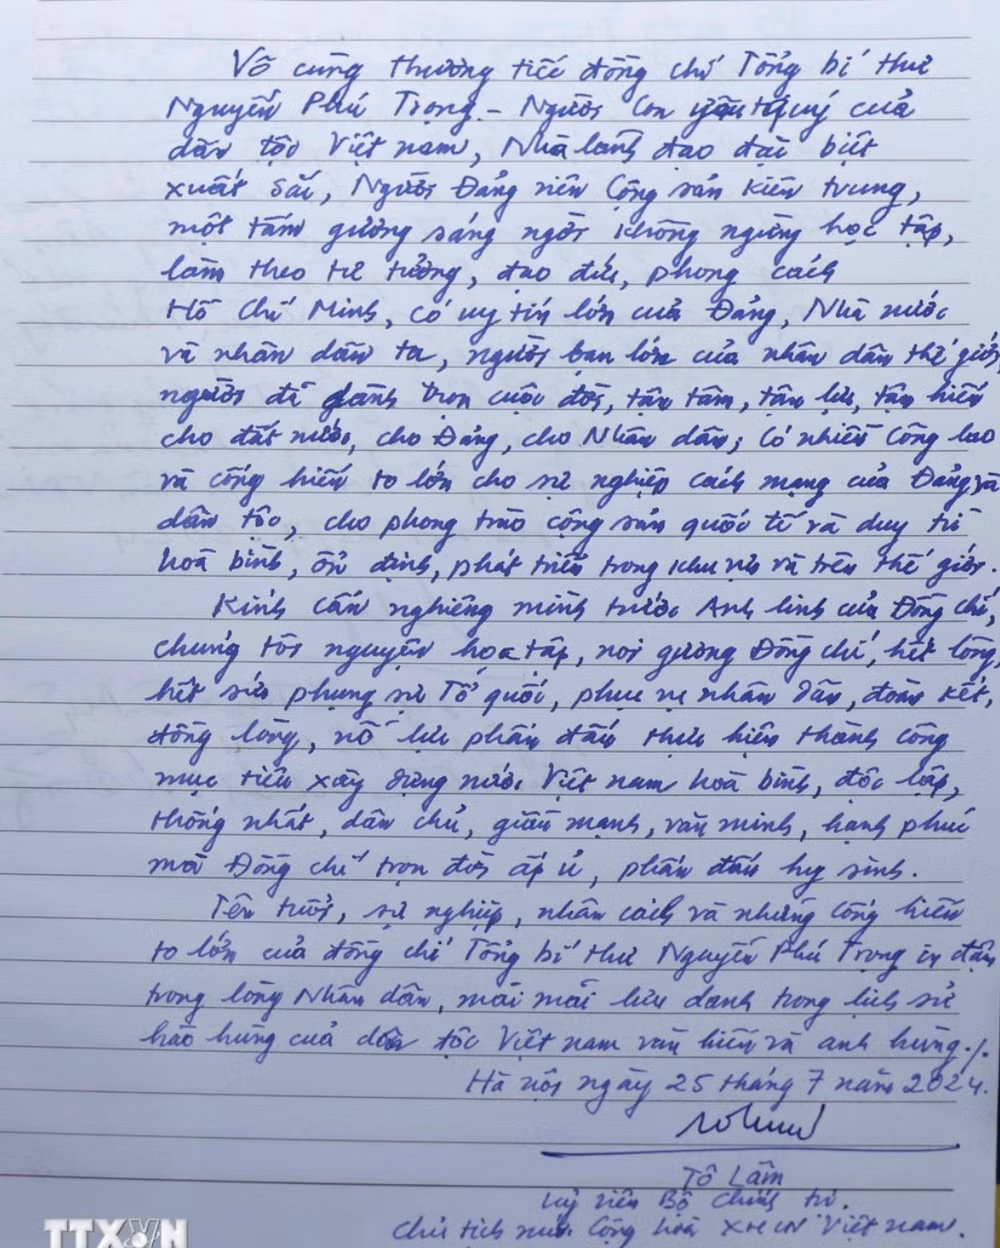 Vô cùng thương tiếc đồng chí Tổng bí thư
Nguyễn Phú Trọng - Người con yêu quý của
dân tộc Việt nam, Nhà lãnh đạo đặc biệt
xuất sắc, Người Đảng viên Cộng sản kiên trung,
một tấm gương sáng ngời không ngừng học tập,
làm theo tư tưởng, đạo đức, phong cách
Hồ Chí Minh, có uy tín lớn của Đảng, Nhà nước
và nhân dân ta, người bạn lớn của nhân dân thế giới,
người đã dành trọn cuộc đời, tận tâm, tận lực, tận hiến
cho đất nước, cho Đảng, cho Nhân dân; Có nhiều công lao
và cống hiến to lớn cho sự nghiệp cách mạng của Đảng và
dân tộc, cho phong trào cộng sản quốc tế và duy trì
hoà bình, ổn định, phát triển trong khu vực và trên thế giới.
Kính cẩn nghiêng mình trước Anh linh của Đồng chí,
chúng tôi nguyện học tập, noi gương Đồng chí, hết lòng,
hết sức phụng sự Tổ quốc, phục vụ nhân dân, đoàn kết,
đồng lòng, nỗ lực phấn đấu thực hiện thành công
mục tiêu xây dựng nước Việt nam hoà bình, độc lập,
thống nhất, dân chủ, giàu mạnh, văn minh, hạnh phúc
mà Đồng chí trọn đời ấp ủ, phấn đấu hy sinh.
Tên tuổi, sự nghiệp, nhân cách và những cống hiến
to lớn của đồng chí Tổng bí thư Nguyễn Phú Trọng in đậm
trong lòng Nhân dân, mãi mãi lưu danh trong lịch sử
hào hùng của dân tộc Việt nam văn hiến và anh hùng./.
Hà nội ngày 25 tháng 7 năm 2024.
Tô Lâm
Uỷ viên Bộ Chính trị.
Chủ tịch nước Cộng hoà XHCN Việt nam.
TTXVN